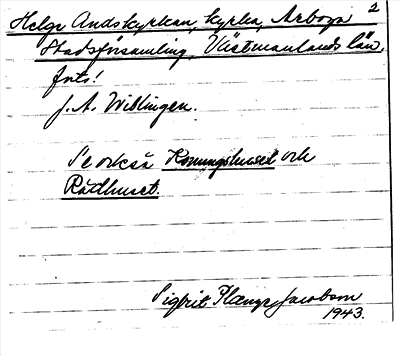 2
Helge Andskyrkan, kyrka, Arboga
Stadsförsamling, Västmanlands län.
forts!
J. A. Wiblingen.
Se också Konungshuset och
Rådhuset.
Sigfrid Jacobson
1943.